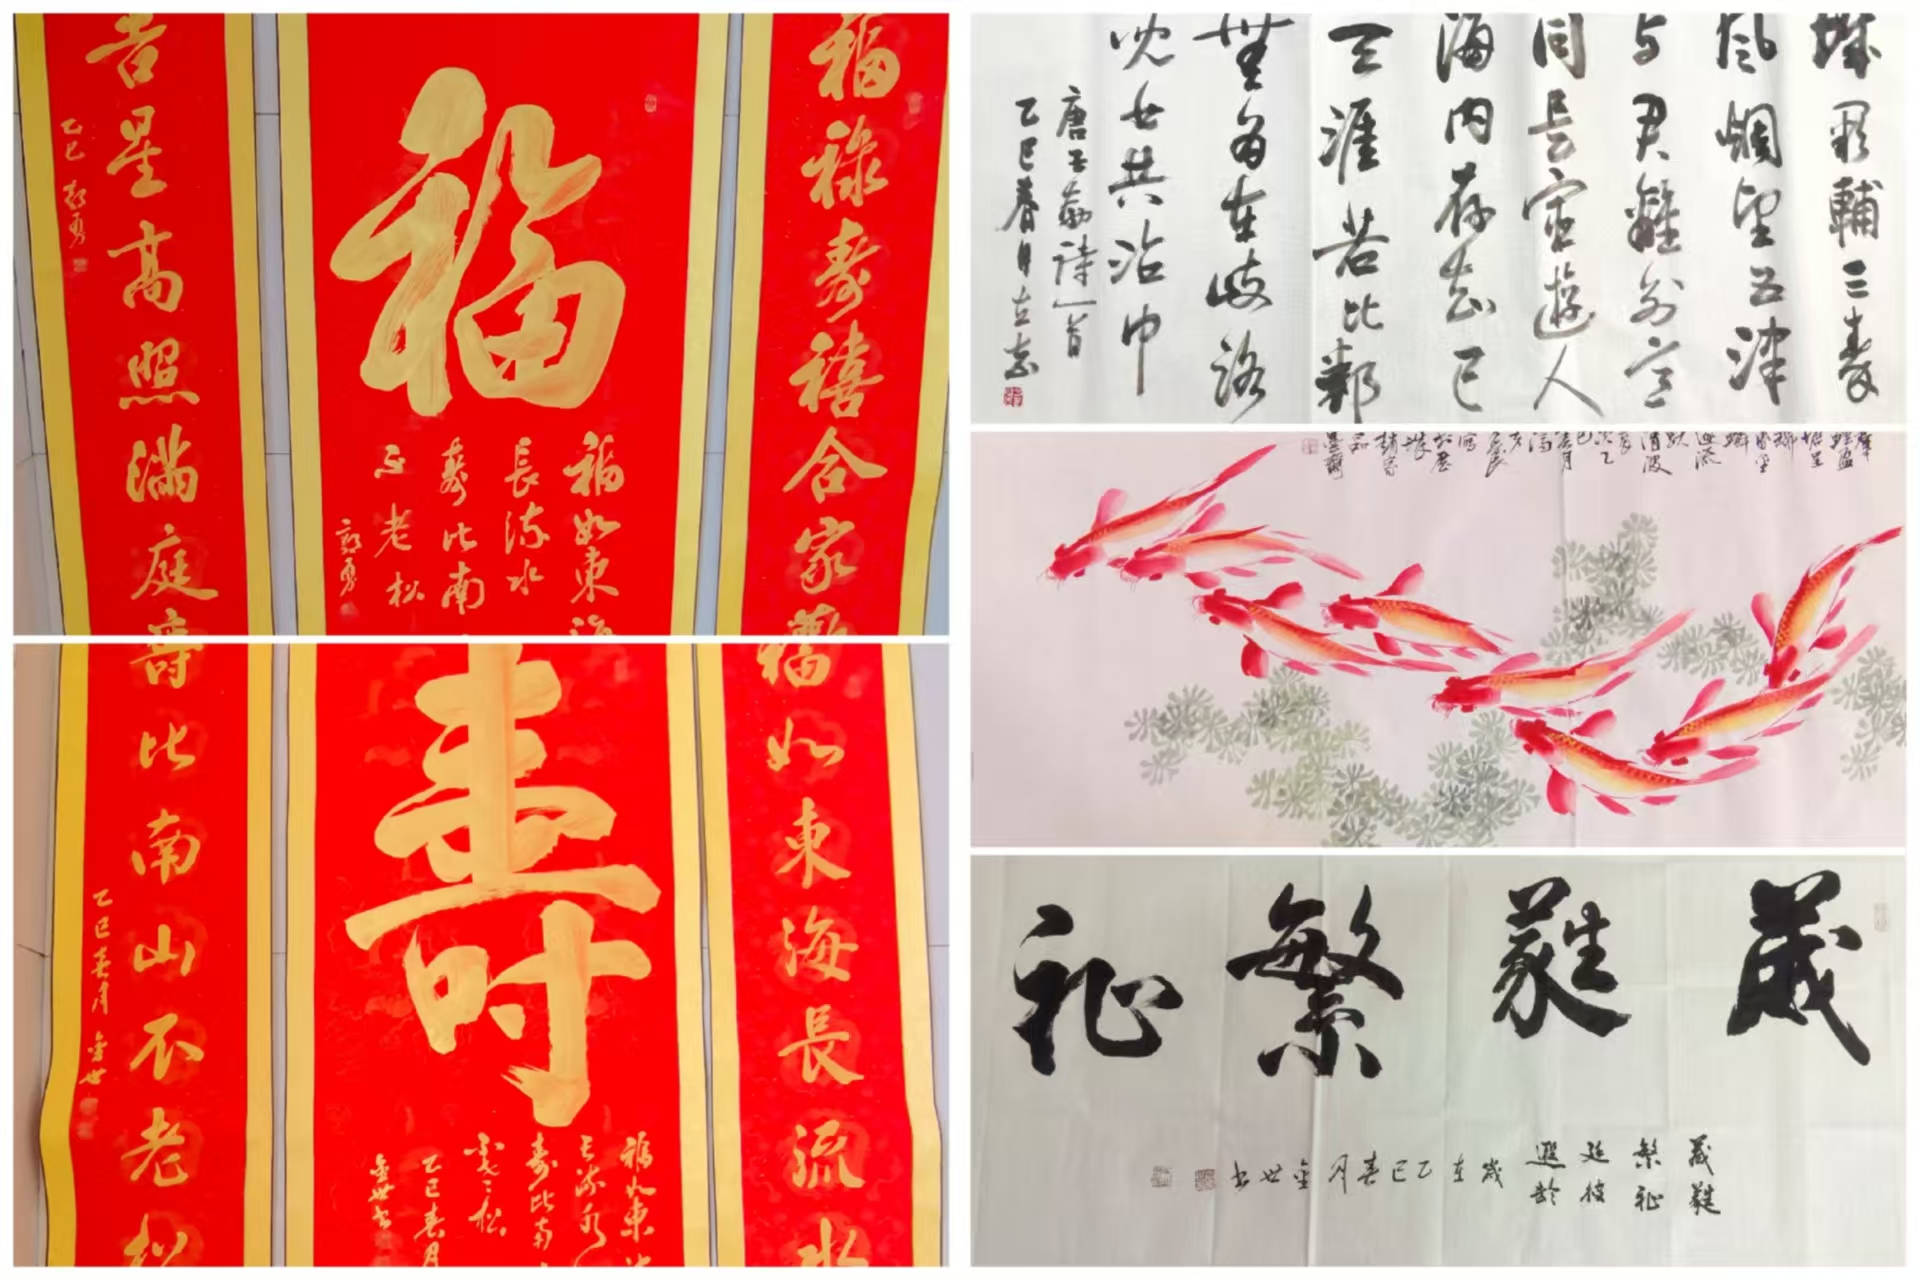 福祿壽禧合家歡
福
福如東海
長流水
壽比南
不老松
郭勇
吉星高照滿庭
乙巳 郭勇
福如東海長流水
壽
福如東海
長流水
壽比南
不老松
乙巳春月
金世書
壽比南山不老松
乙巳春月 金世
城闕輔三秦
風烟望五津
与君離別意
同是宦遊人
海内存知己
天涯若比鄰
無為在歧路
兒女共沾巾
唐王勃詩一首
乙巳春月立志
葳蕤繁祉
葳蕤
繁祉
延彼
遐齡
歲在乙巳春月金世書